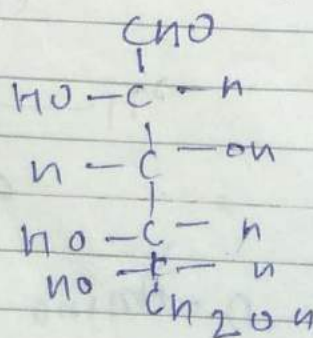 CHO
HO - C - H
H - C - OH
HO - C - H
HO - C - H
CH2OH